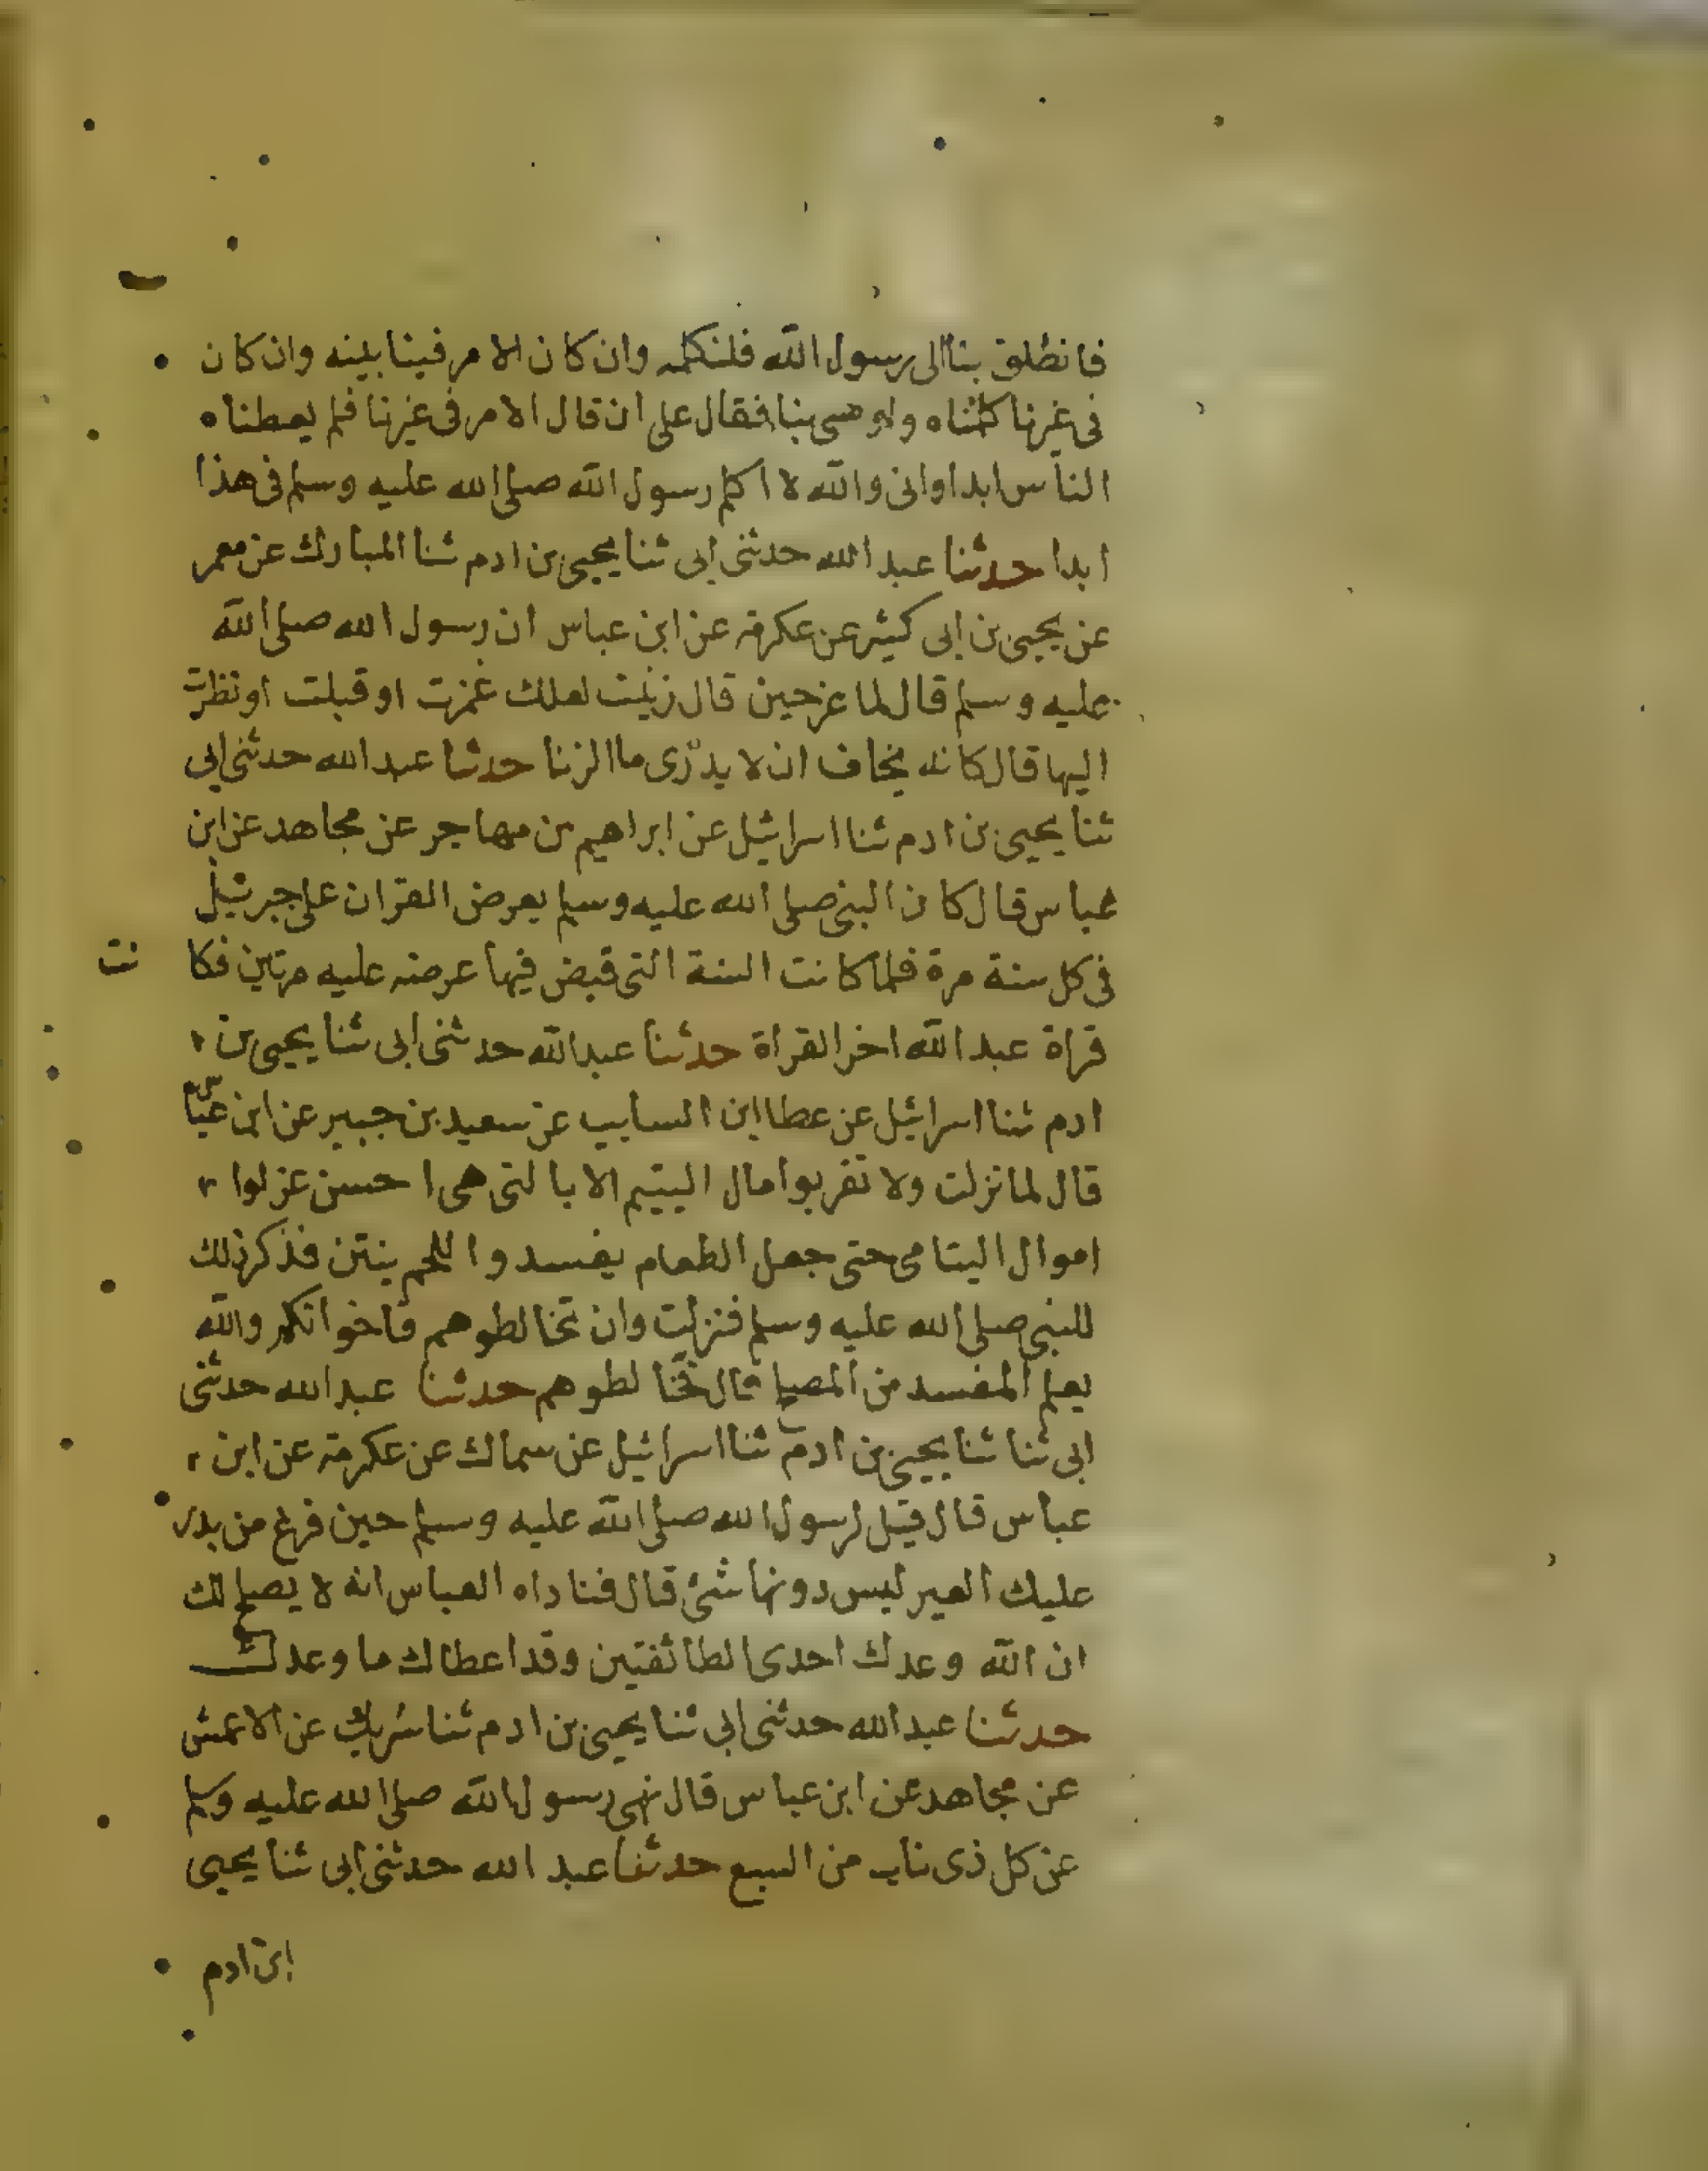 فانطلق بنا الى رسول الله فلنكلمه وان كان الامر فينا بينه وان كان
فى غيرنا كلمناه واوصى بنا فقال على ان قال الامر فى غيرنا فلم يعطناه
الناس ابدا وانى والله لا اكلم رسول الله صلى الله عليه وسلم فى هذا
ابدا حدثنا عبد الله حدثنى ابى ثنا يحيى بن ادم ثنا المبارك عن معمر
عن يحيى بن ابى كثير عن عكرمة عن ابن عباس ان رسول الله صلى الله
عليه وسلم قال لماعز حين قال زنيت لعلك غمزت او قبلت او نظرت
اليها قال كانه يخاف ان لا يدرى ما الزنا حدثنا عبد الله حدثنى ابى
ثنا يحيى بن ادم ثنا اسرائيل عن ابراهيم بن مهاجر عن مجاهد عن ابن
عباس قال كان النبى صلى الله عليه وسلم يعرض القران على جبرئيل
فى كل سنة مرة فلما كانت السنة التى قبض فيها عرضه عليه مرتين فكا نت
قراة عبد الله اخر القراة حدثنا عبد الله حدثنى ابى ثنا يحيى بن
ادم ثنا اسرائيل عن عطا ابن السايب عن سعيد بن جبير عن ابن عباس
قال لما نزلت ولا تقربوا مال اليتيم الا بالتى هى احسن عزلوا
اموال اليتامى حتى جعل الطعام يفسد واللحم ينتن فذكر ذلك
للنبى صلى الله عليه وسلم فنزلت وان تخالطوهم فاخوانكم والله
يعلم المفسد من المصلح قال فخالطوهم حدثنا عبد الله حدثنى
ابى ثنا ثنا يحيى بن ادم ثنا اسرائيل عن سماك عن عكرمة عن ابن
عباس قال قيل لرسول الله صلى الله عليه وسلم حين فرغ من بدر
عليك العير ليس دونها شئ قال فناداه العباس انه لا يصلح لك
ان الله وعدك احدى الطائفتين وقد اعطاك ما وعدك
حدثنا عبد الله حدثنى ابى ثنا يحيى بن ادم ثنا شريك عن الاعمش
عن مجاهد عن ابن عباس قال نهى رسول الله صلى الله عليه وسلم
عن كل ذى ناب من السبع حدثنا عبد الله حدثنى ابى ثنا يحيى
ابن ادم